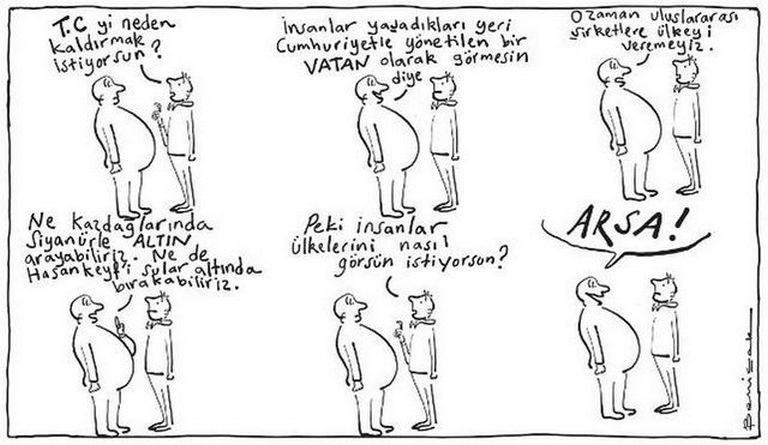 T.C yi neden
kaldırmak
istiyorsun?
İnsanlar yaşadıkları yeri
Cumhuriyetle yönetilen bir
VATAN olarak görmesin
diye
O zaman uluslararası
şirketlere ülkeyi
veremeyiz.
Ne Kazdağlarında
Siyanürle ALTIN
arayabiliriz. Ne de
Hasankeyf'i sular altında
bırakabiliriz.
Peki insanlar
ülkelerini nasıl
görsün istiyorsun?
ARSA!
Behiçak